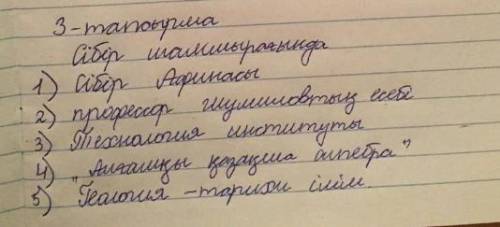 3-тапсырма
Сібір шамшырағында
1) Сібір Афинасы
2) профессор шумиловтың есебі
3) Технология институты
4) "Алғашқы қазақша алгебра"
5) Геология - тарихи ілім.